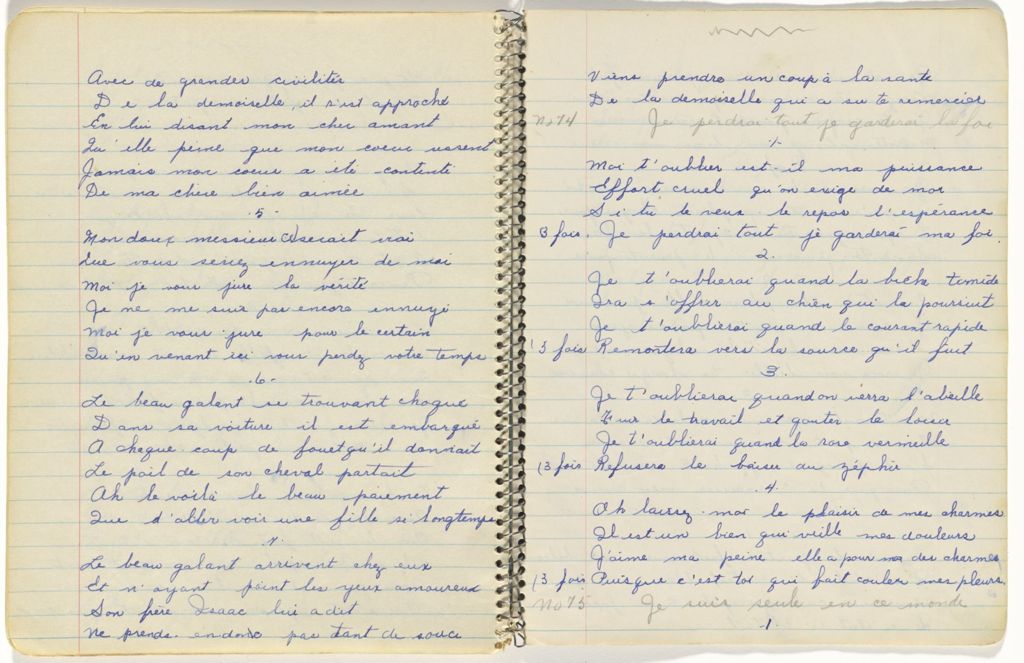 Avec de grander civilitér
De la demoiselle, il s'est approché
En lui disant mon cher amant
Qu'elle peine que mon coeur ressent
Jamais mon coeur a été contenté
De ma chère bien aimée
.5.
Mon doux messieur serait vrai
Que vous seriez ennuyer de moi
Moi je vour jure la vérité
Je ne me suis pas encore ennuyé
Moi je vour jure pour le certain
Qu'en venant ici vour perdez votre temps
.6.
Le beau galant se trouvant choqué
Dans sa voiture il est embarqué
A chaque coup de fouet qu'il donnait
Le poil de son cheval partait
Ah le voilà le beau paiement
Que d'aller voir une fille si longtemps
7
Le beau galant arrivent chez eux
Et n'ayant point les yeux amoureux
Son frère Isaac lui a dit
Ne prends donc pas tant de souci
Viens prendre un coup à la santé
De la demoiselle qui a su te remercier
No 74 Je perdrai tout je garderai la foi
1.
Moi t'oublier est-il ma puissance
Effort cruel qu'on exige de moi
Si tu le veux le repos l'espérance
3 fois. Je perdrai tout je garderai ma foi.
2.
Je t'oublierai quand la biche timide
Ira s'offrir au chien qui la poursuit
Je t'oublierai quand le courant rapide
(3 fois Remontera vers la source qu'il fuit
3.
Je t'oublierai quand on verra l'abeille
le travail et gouter le loisir
Je t'oublierai quand la rose vermeille
(3 fois Refusera le baiser du zéphir
.4.
Ah laissez-moi le plaisir de mes charmes
Il est un bien qui veille mes douleurs
J'aime ma peine elle a pour moi des charmes
(3 fois Puisque c'est toi qui fait couler mes pleurs.
No 75 Je suis seule en ce monde
.1.